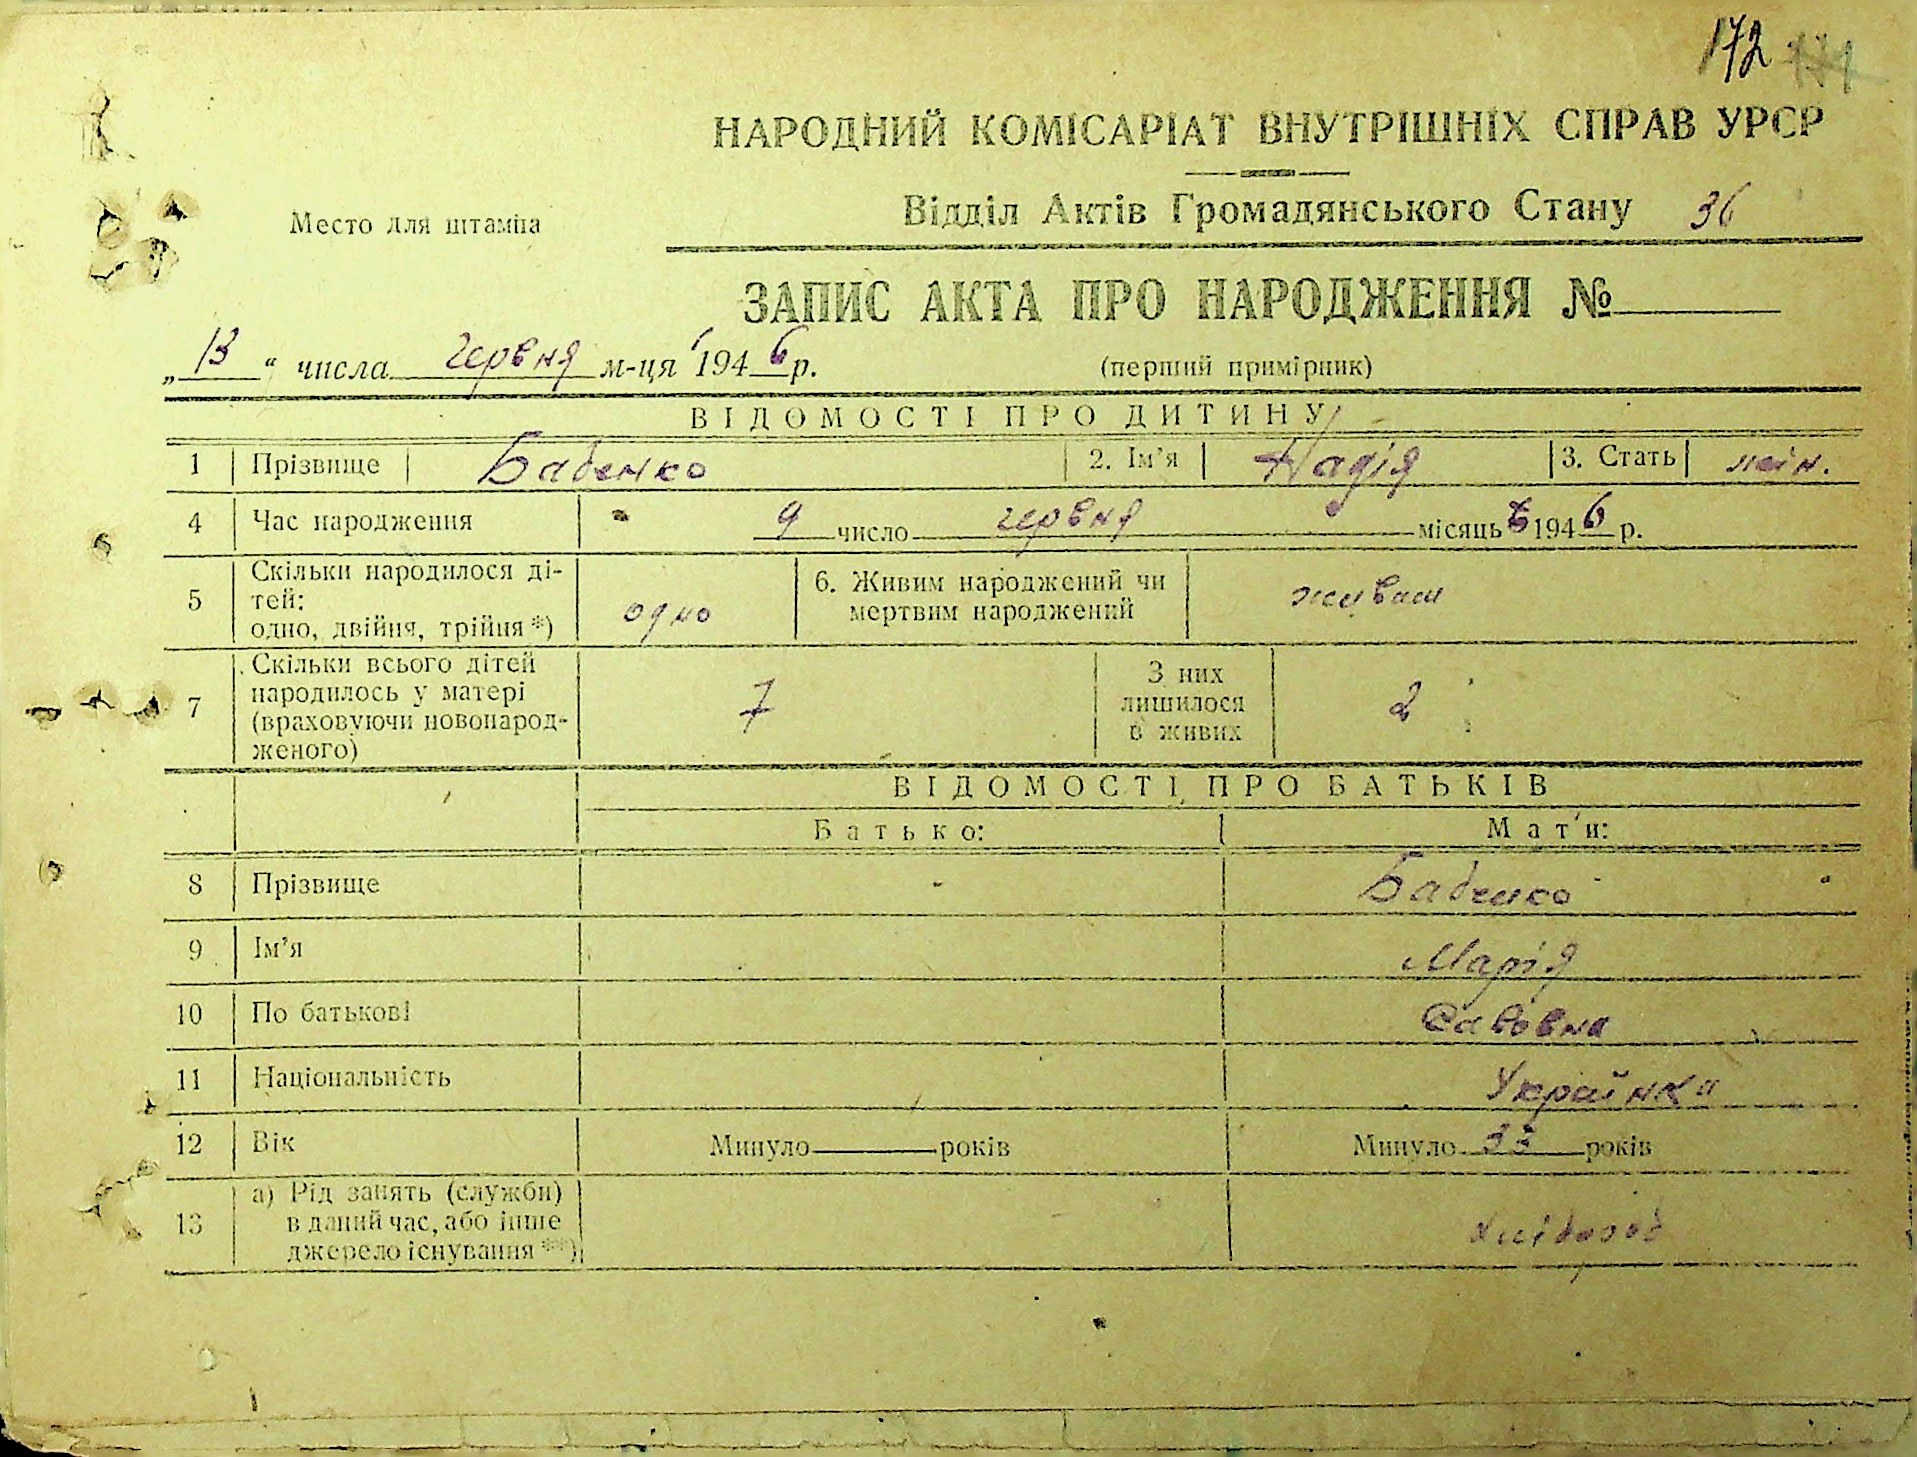 172 171
НАРОДНИЙ КОМІСАРІАТ ВНУТРІШНІХ СПРАВ УРСР
Место для штампа
Відділ Актів Громадянського Стану 36
ЗАПИС АКТА ПРО НАРОДЖЕННЯ №
„13“ числа червня м-ця 1946 р.
(перший примірник)
ВІДОМОСТІ ПРО ДИТИНУ
1 Прізвище Бабенко 2. Ім'я Надія 3. Стать
4 Час народження 9 число червня місяць 1946 р.
5 Скільки народилося ді-
тей:
одно, двійня, трійня *) одно
6. Живим народжений чи
мертвим народжений живим
7 Скільки всього дітей
народилось у матері
(враховуючи новонарод-
женого) 7
З них
лишилося
в живих 2
ВІДОМОСТІ ПРО БАТЬКІВ
Батько: Мати:
8 Прізвище Бабенко
9 Ім'я Марія
10 По батькові Савовна
11 Національність Українка
12 Вік Минуло років Минуло 33 років
13 а) Рід занять (служби)
в даний час, або інше
джерело існування **)